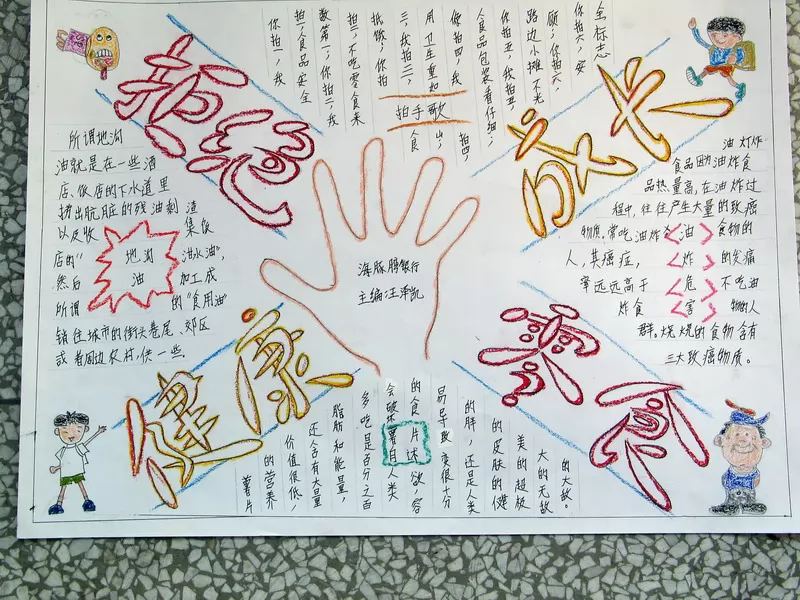 拒绝
零食
健康
成长
拍手歌
你拍一,我
拍一,食品安全
数第一;你拍二,我
拍二,不吃零食来
抵饿;你拍
三,我拍三,
用卫生重如
山;
你拍四,我
拍四,
食品包装看仔细;
你拍五,我拍五,
路边小摊不光
顾;你拍六,
你拍六,安
全标志
所谓地沟
油就是在一些酒
店、饭店的下水道里
捞出肮脏的残油剩渣
以及收集饭
店的“泔水油”,
然后加工成
所谓的“食用油”
销往城市的街头巷尾、郊区
或者周边农村,供一些
地沟
油
海豚膀银行
主编:汪泽凯
油炸
食品因油炸食
品热量高,在油炸过
程中,往往产生大量的致癌
物质。常吃油炸食物的
人,其癌症的发病
率远远高于不吃油
炸食物的人
群。烧烤的食物含有
三大致癌物质。
油
炸
危
害
薯片
的营养
价值很低,
还含有大量
脂肪和能量,
多吃是百分之百
会破
的食欲,容
易导致变很十分
的胖,还是人类
的皮肤的健
美的超极
大的无敌
的大敌。
薯片
自述